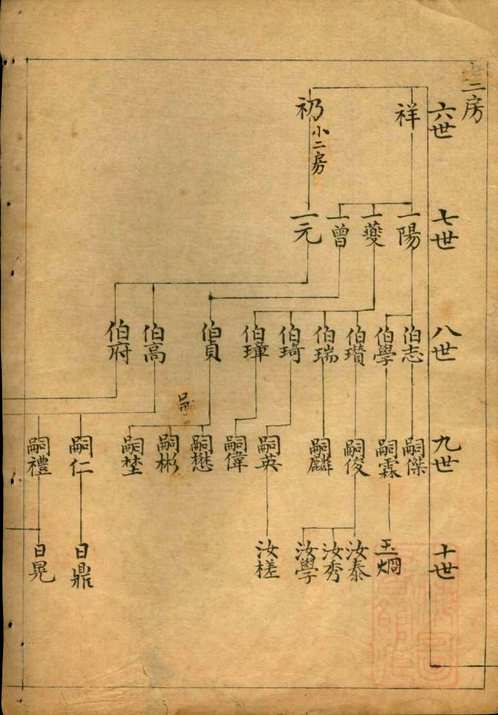 二房
六世
祥
礽 小二房
七世
一陽
一夔
一曾
一元
八世
伯志
伯學
伯瓚
伯瑞
伯琦
伯璋
伯貝
伯高
伯府
九世
嗣傑
嗣霖
嗣俊
嗣麟
嗣英
嗣偉
嗣懋
嗣彬
嗣埜
嗣仁
嗣禮
嗣
十世
玉烱
汝泰
汝秀
汝學
汝槎
日鼎
日晃